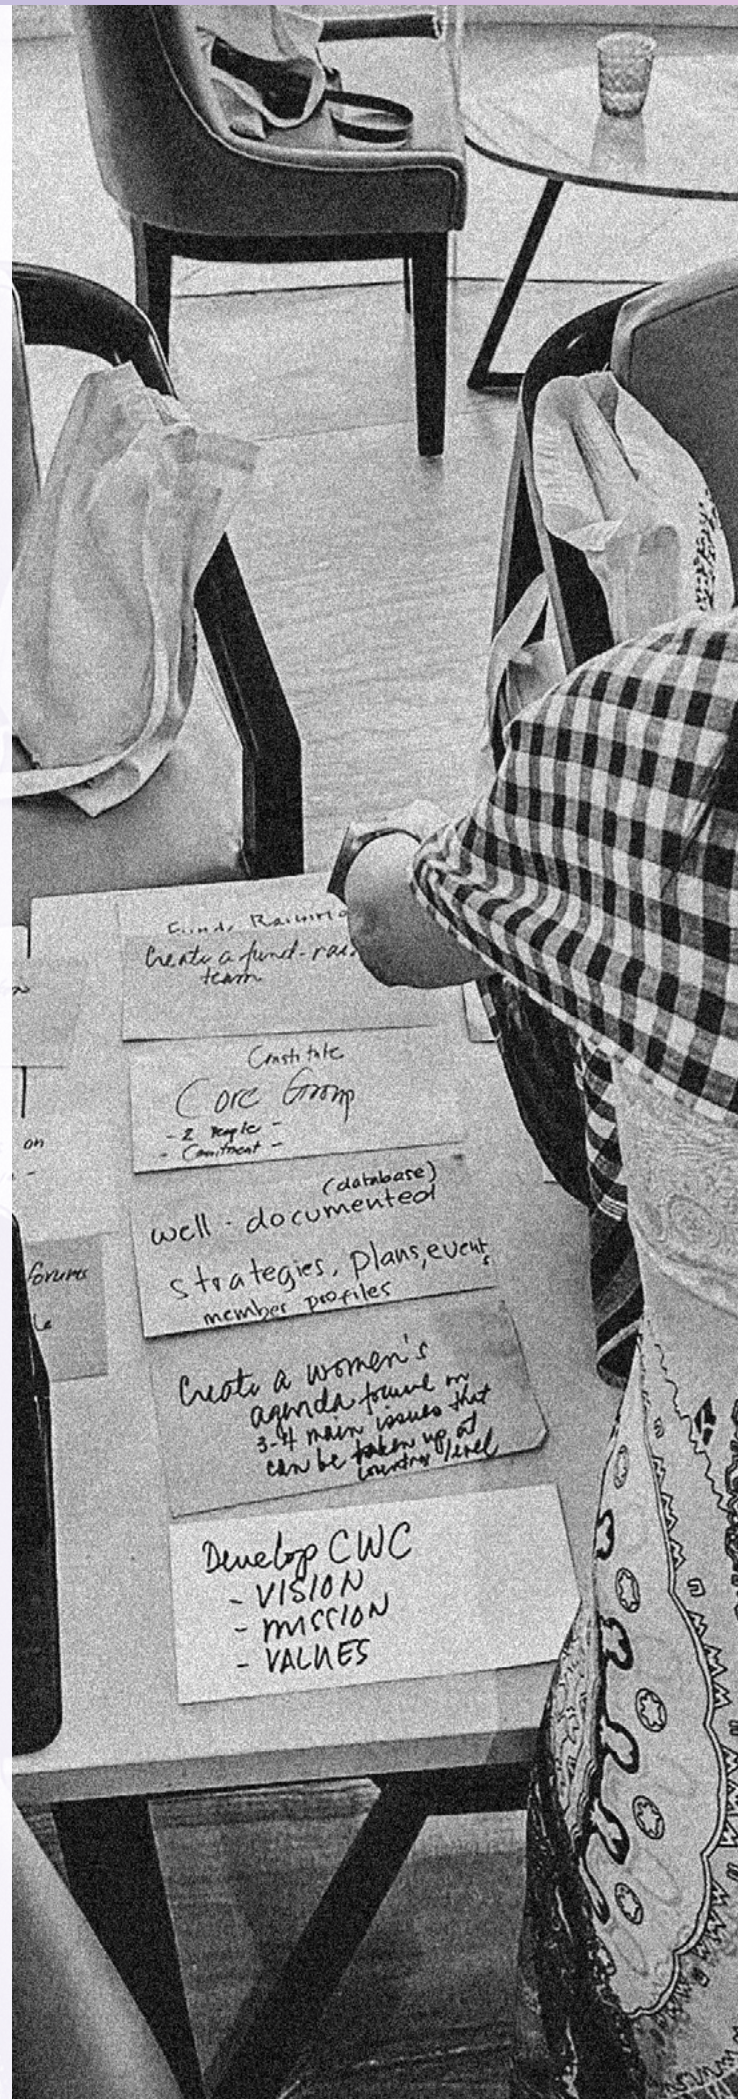 on
forums
Create a fund-
team
Constitute
Core Group
- 2 People -
- Comitment -
(database)
well - documented
strategies, plans, events
member profiles
Create a women's
agenda focused on
3-4 main issues that
can be taken up at
country level
Develop CWC
- VISION
- MISSION
- VALUES